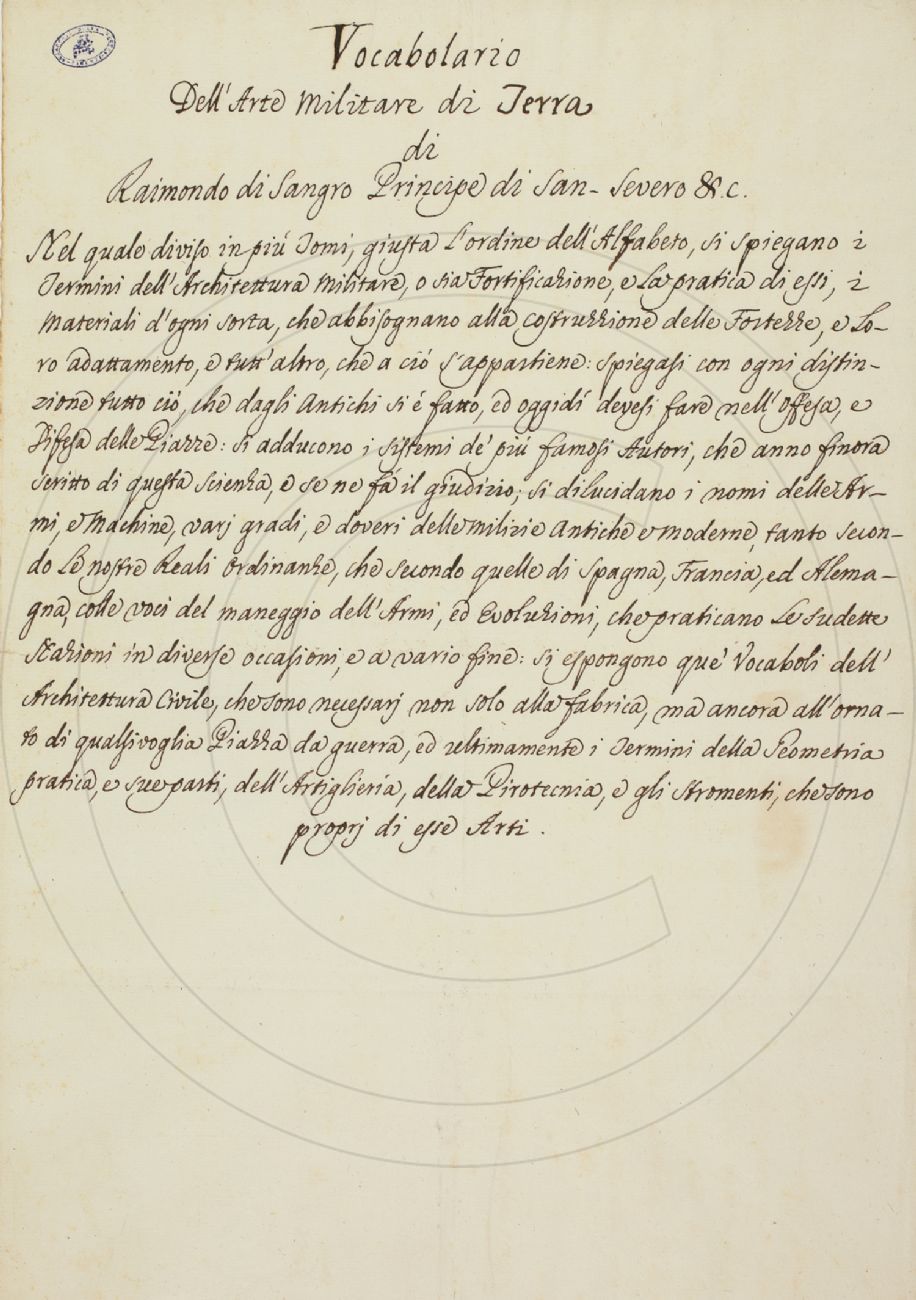 Vocabolario
Dell'Arte Militare di Terra
di
Raimondo di Sangro Principe di San- Severo &c.
Nel quale diviso in più Tomi, giusta l'ordine dell'Alfabeto, si spiegano i
Termini dell'Architettura Militare, o sia Fortificazione, e la pratica di essi, i
Materiali d'ogni sorta, che abbisognano alla costruzzione delle Fortezze, e lo-
ro adattamento, e tutt'altro, che a ciò s'appartiene: spiegasi con ogni distin-
zione tutto ciò, che dagli Antichi si è fatto, ed oggidì devesi fare nell'offesa, e
Difesa delle Piazze: si adducono i sistemi de' più famosi Autori, che anno finora
scritto di questa scienza, e se ne fà il giudizio; si dilucidano i nomi delle Ar-
mi, e Machine, varj gradi, e doveri delle Milizie Antiche e moderne, tanto secon-
do le nostre Reali Ordinanze, che secondo quelle di Spagna, Francia, ed Alema-
gna, colle voci del maneggio dell'Armi, ed Evoluzioni, che praticano le sudette
Nazioni in diverse occasioni, e a vario fine: si espongono que' Vocaboli dell'
Architettura Civile, che sono necessarj non solo alla fabrica, ma ancora all'orna-
to di qualsivoglia Piazza da guerra, ed ultimamente i Termini della Geometria
pratica, e sue parti, dell'Artiglieria, della Pirotecnia, e gli stromenti, che sono
proprj di esse Arti.